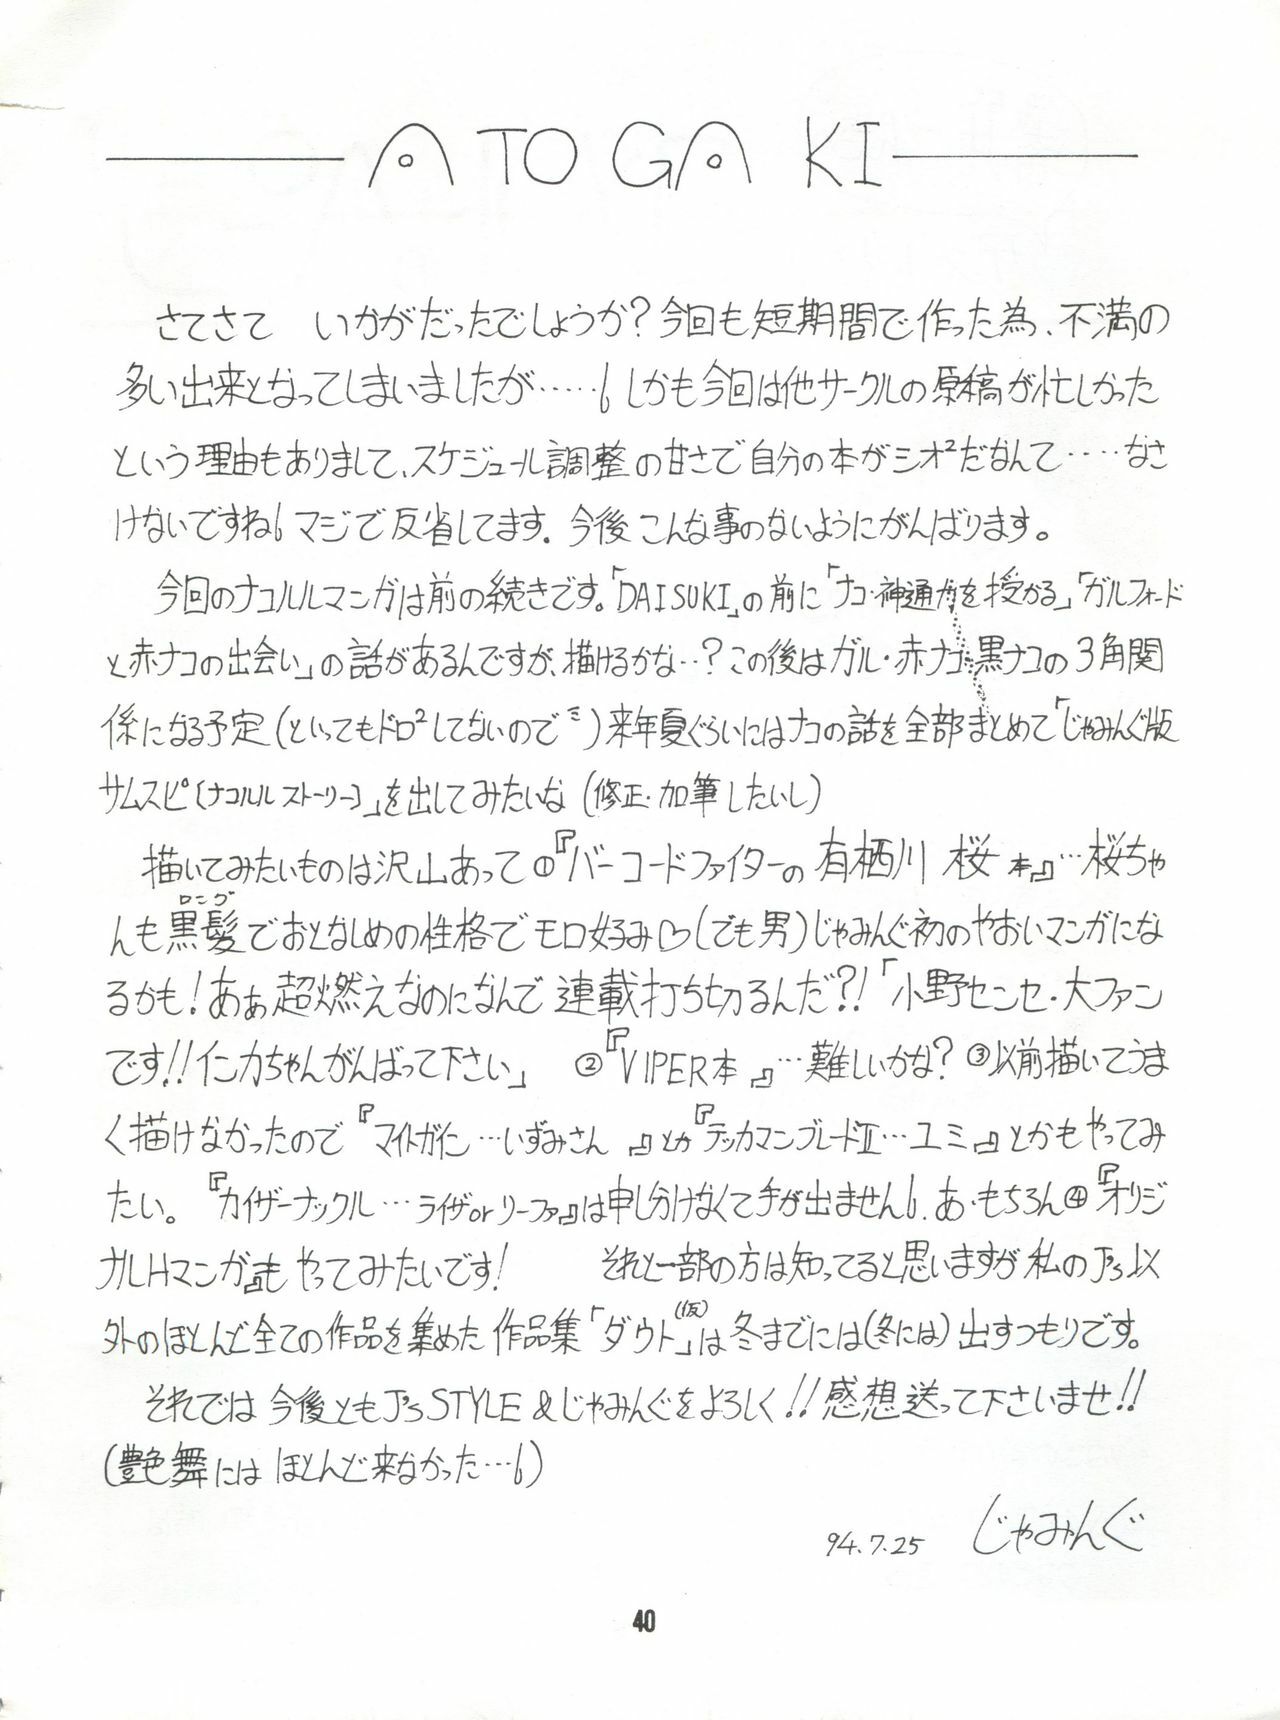 ATOGAKI
さてさて　いかがだったでしょうか？今回も短期間で作った為、不満の
多い出来となってしまいましたが……しかも今回は他サークルの原稿が忙しかった
という理由もありまして、スケジュール調整の甘さで自分の本がシオ²だなんて‥‥なさ
けないですね マジで反省してます。今後こんな事のないようにがんばります。
今回のナコルルマンガは前の続きです。「DAISUKI」の前に「ナコ・神通力を授かる」「ガルフォード
と赤ナコの出会い」の話があるんですが、描けるかな‥？この後はガル・赤ナコ・黒ナコの3角関
係になる予定（といってもドロ²してないので）来年夏ぐらいにはナコの話を全部まとめて「じゃみんぐ版
サムスピ〔ナコルルストーリー〕」を出してみたいな（修正・加筆したいし）
描いてみたいものは沢山あって①『バーコードファイターの有栖川 桜 本』…桜ちゃ
ロング
んも黒髪でおとなしめの性格でモロ好み♡（でも男）じゃみんぐ初のやおいマンガにな
るかも！あぁ超燃えなのになんで連載打ち切るんだ?!「小野センセ・大ファン
です!!インカちゃんがんばって下さい」　②『VIPER本』…難しいかな？③以前描いてうま
く描けなかったので『マイトガイン…いずみさん』とか『テッカマンブレードⅡ…ユミ』とかもやってみ
たい。『カイザーナックル…ライザorリーファ』は申し分けなくて手が出ません。あ・もちろん④『オリジ
ナルHマンガ』もやってみたいです！　それと一部の方は知ってると思いますが私のJ's以
外のほとんど全ての作品を集めた作品集「ダウト(仮)」は冬までには（冬には）出すつもりです。
それでは今後ともJ's STYLE＆じゃみんぐをよろしく!!感想送って下さいませ!!
（艶舞にはほとんど来なかった…）
94.7.25　じゃみんぐ
40